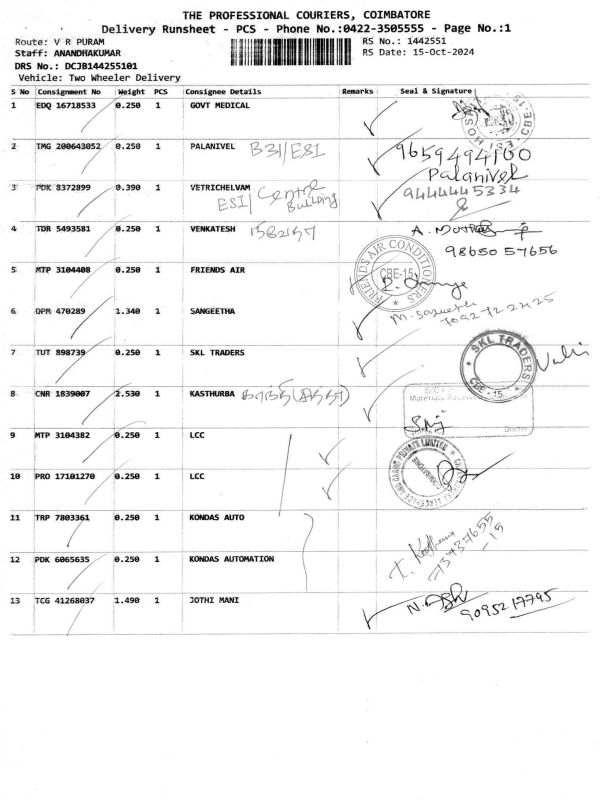 THE PROFESSIONAL COURIERS, COIMBATORE
Delivery Runsheet - PCS - Phone No.:0422-3505555 - Page No.:1
Route: V R PURAM
RS No.: 1442551
Staff: ANANDHAKUMAR
RS Date: 15-Oct-2024
DRS No.: DCJB144255101
Vehicle: Two Wheeler Delivery
S No Consignment No Weight PCS Consignee Details Remarks Seal & Signature
1 EDQ 16718533 0.250 1 GOVT MEDICAL
2 TMG 200643052 0.250 1 PALANIVEL B31/ESI 9659494100
Palanivel
3 PDK 8372899 0.390 1 VETRICHELVAM ESI/Centre Building 9444445334
4 TDR 5493581 0.250 1 VENKATESH
98650 57656
5 MTP 3104408 0.250 1 FRIENDS AIR
FRIENDS AIR CONDITIONERS
CBE-15
6 OPM 470289 1.340 1 SANGEETHA
7 TUT 898739 0.250 1 SKL TRADERS
SKL TRADERS
CBE - 15
8 CNR 1839007 2.530 1 KASTHURBA
Doctor
9 MTP 3104382 0.250 1 LCC
10 PRO 17101270 0.250 1 LCC
11 TRP 7803361 0.250 1 KONDAS AUTO
12 PDK 6065635 0.250 1 KONDAS AUTOMATION
13 TCG 41268037 1.490 1 JOTHI MANI
9095217795